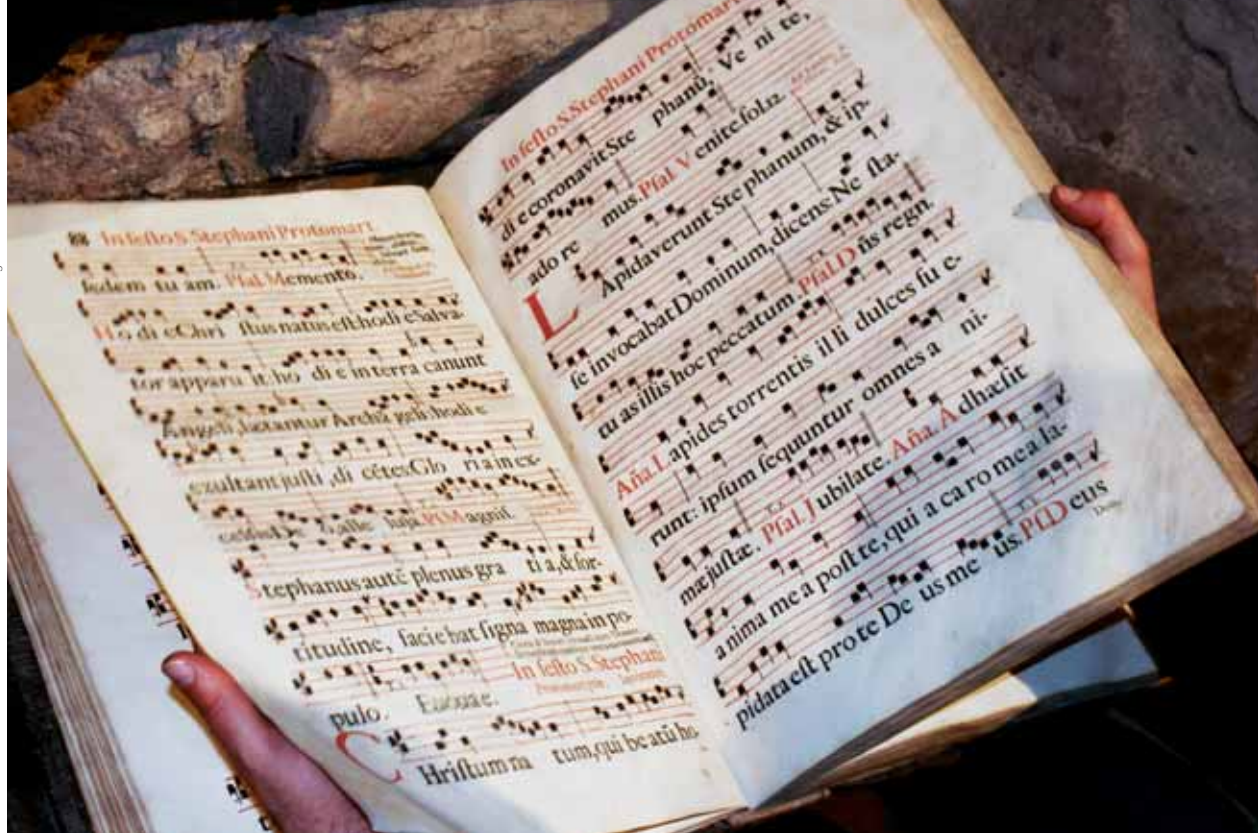 In festo S. Stephani Protomart
sedem tu am. Psal. Memento.
Ho di e Chri stus natus est: hodi e Salva-
tor apparu it: ho di e in terra canunt
Angeli, lætantur Archã geli: hodi e
exultant justi, di cétes: Glo ri a in ex-
celsis De Alle luja. Ps. Magnif.
Stephanus autẽ plenus gra ti a, & for-
titudine, faciebat signa magna in po-
pulo. Euouae.
In festo S. Stephani
CHristum na tum, qui be atũ ho
In festo S. Stephani Protomart
di e coronavit Ste phanũ, Ve ni te,
ado re mus. Psal. V enite. fol. 12.
LApidaverunt Ste phanum, & ip-
se invocabat Dominum, dicens: Ne sta-
tu as illis hoc peccatum. Psal. D ñs regn.
Aña. Lapides torrentis il li dulces fu e-
runt: ipsum sequuntur omnes a ni-
mæ justæ. Psal. J ubilate. Aña. A dhæsit
anima me a post te, qui a ca ro me a la-
pidata est pro te De us me us. Ps. D eus